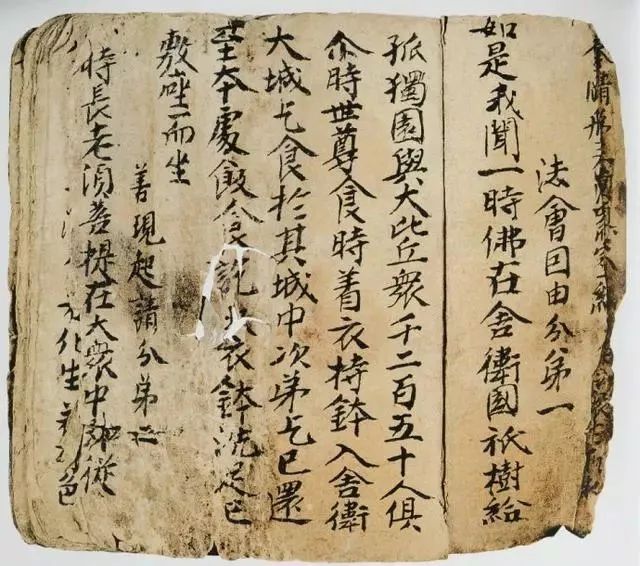 奉請
法會因由分苐一
如是我聞一時佛在舍衛國祇樹給
孤獨園與大比丘衆千二百五十人俱
尒時世尊食時着衣持鉢入舍衛
大城乞食於其城中次苐乞已還
至本處飯食訖衣鉢洗足已
敷座而坐
善現起請分苐二
時長老須菩提在大衆中即從
化生若色